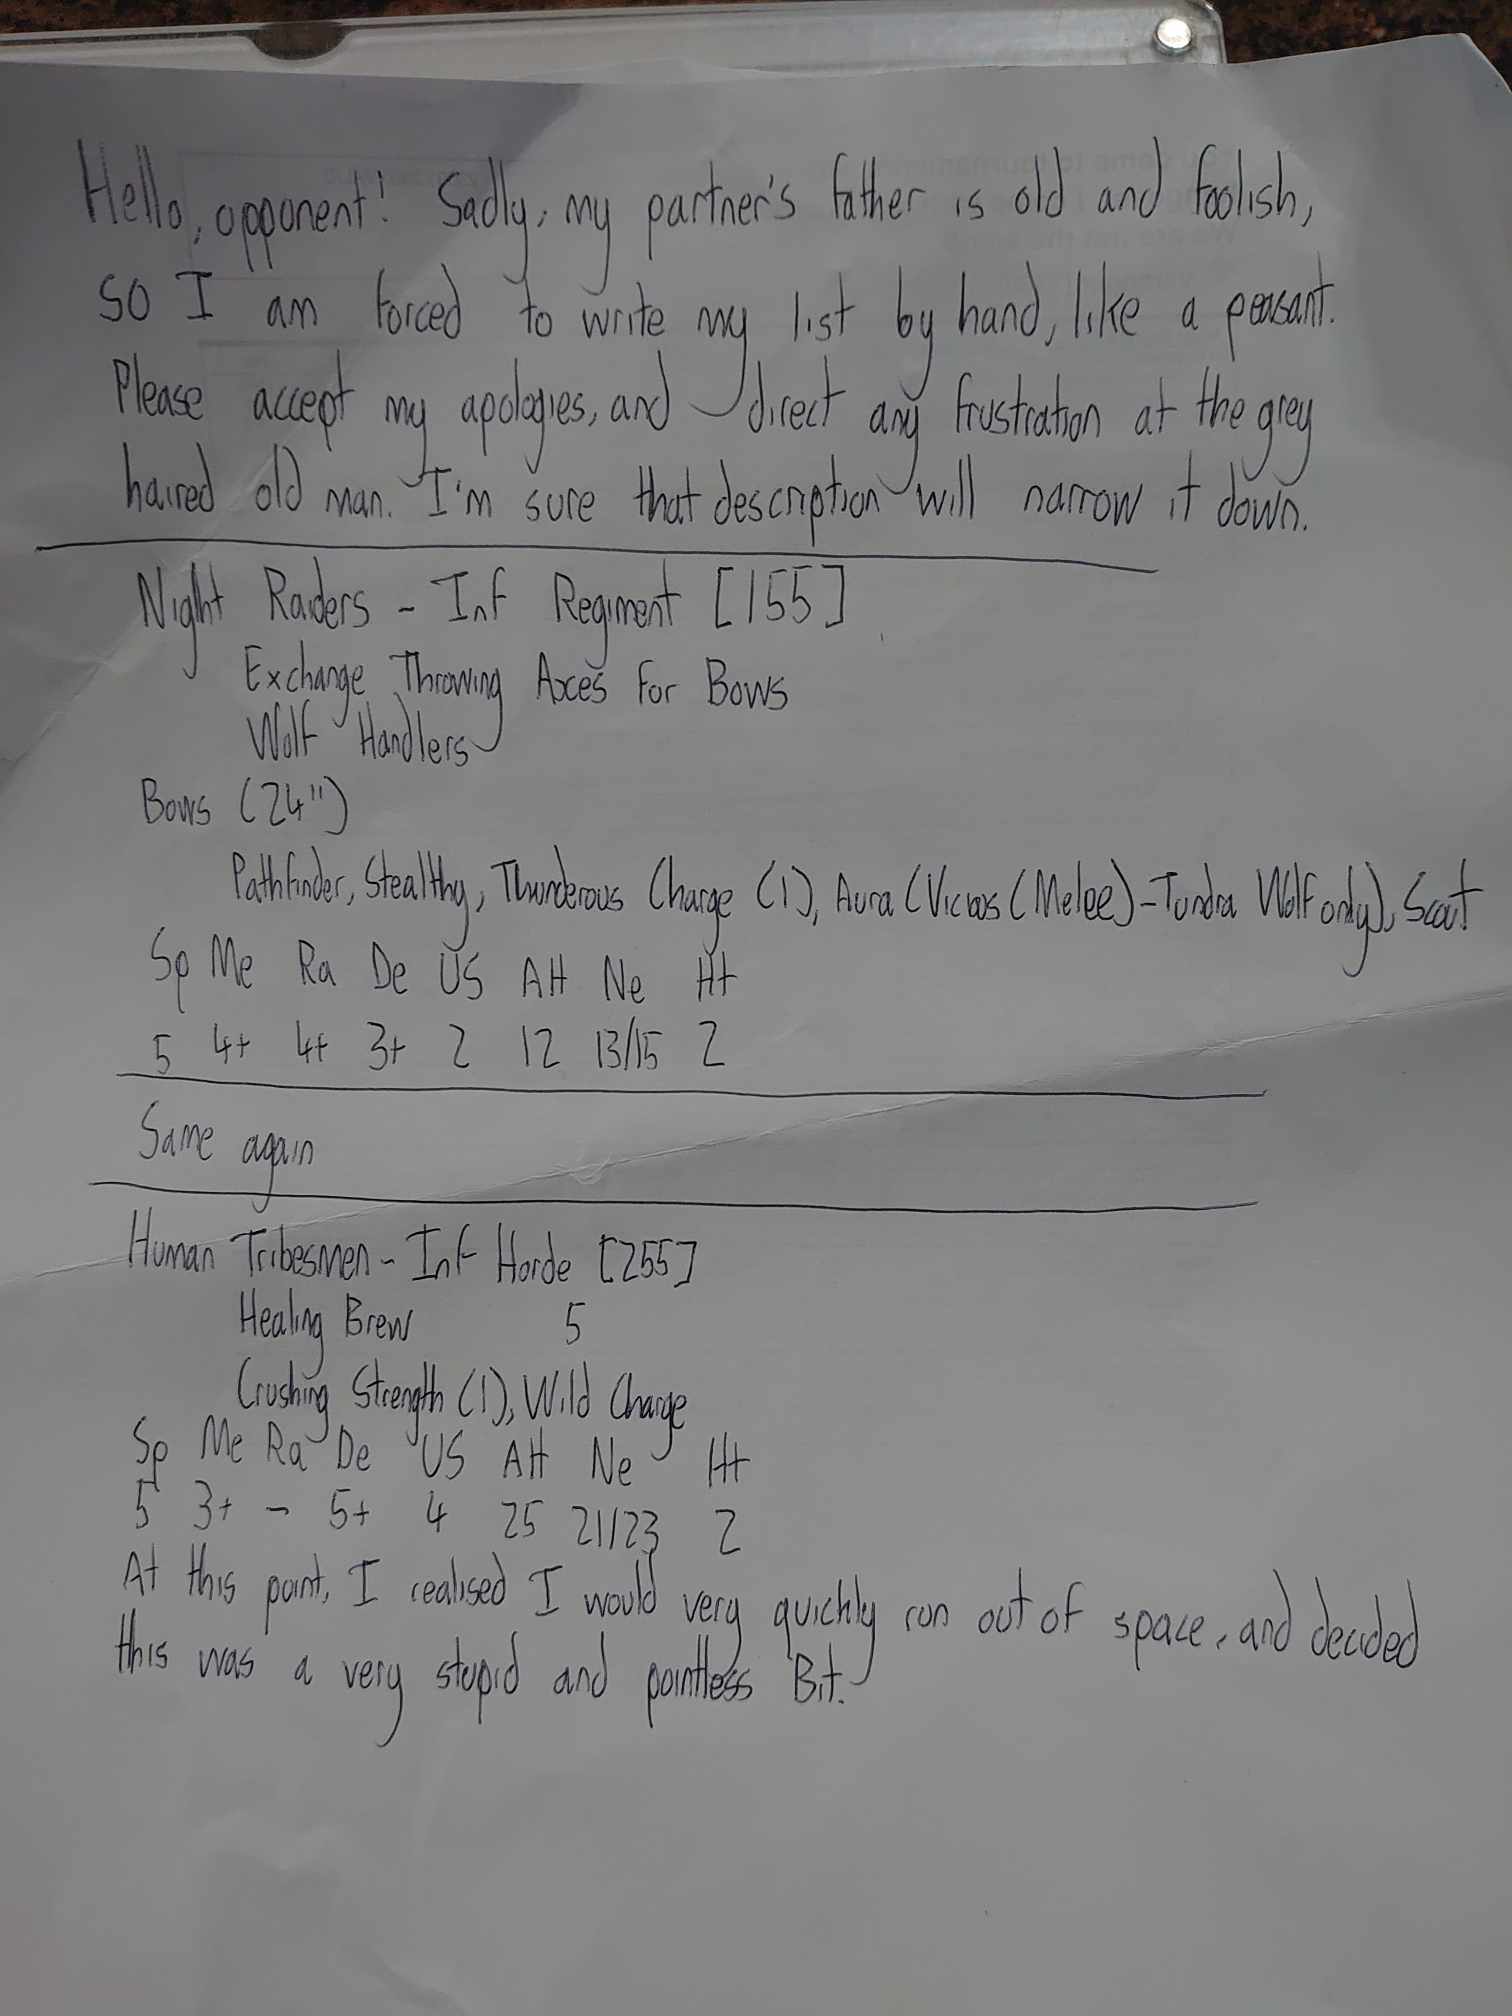 Hello, opponent! Sadly, my partner's father is old and foolish,
so I am forced to write my list by hand, like a peasant.
Please accept my apologies, and direct any frustration at the grey
haired old man. I'm sure that description will narrow it down.
Night Raiders - Inf Regiment [155]
Exchange Throwing Axes for Bows
Wolf Handlers
Bows (24")
Pathfinder, Stealthy, Thunderous Charge (1), Aura (Vicious (Melee) - Tundra Wolf only), Scout
Sp Me Ra De US Att Ne Ht
5 4+ 4+ 3+ 2 12 13/15 2
Same again
Human Tribesmen - Inf Horde [255]
Healing Brew 5
Crushing Strength (1), Wild Charge
Sp Me Ra De US Att Ne Ht
5 3+ - 5+ 4 25 21/23 2
At this point, I realised I would very quickly run out of space, and decided
this was a very stupid and pointless Bit.